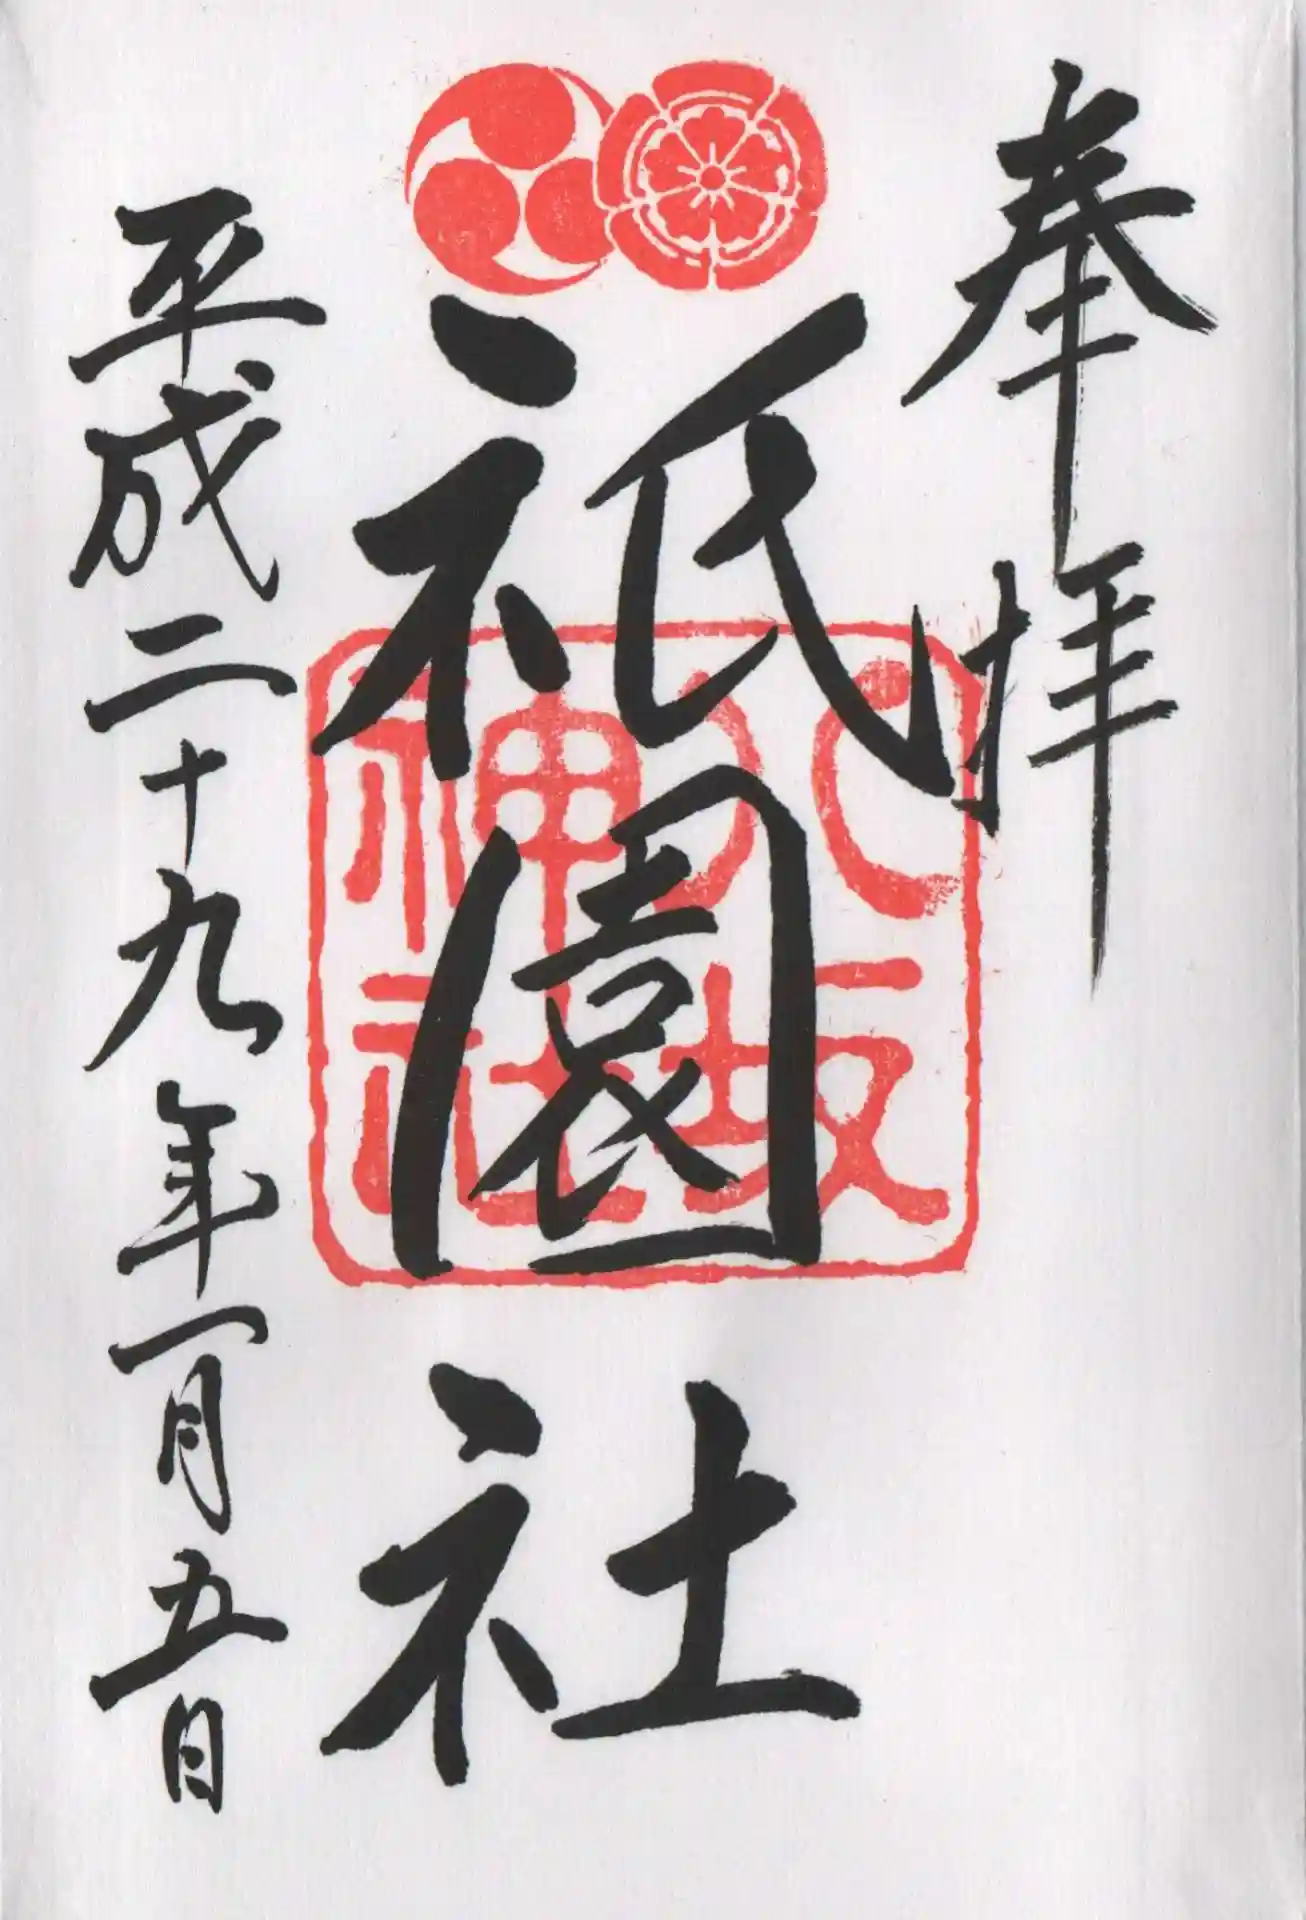 奉拝
祇園社
八坂
神社
平成二十九年一月五日